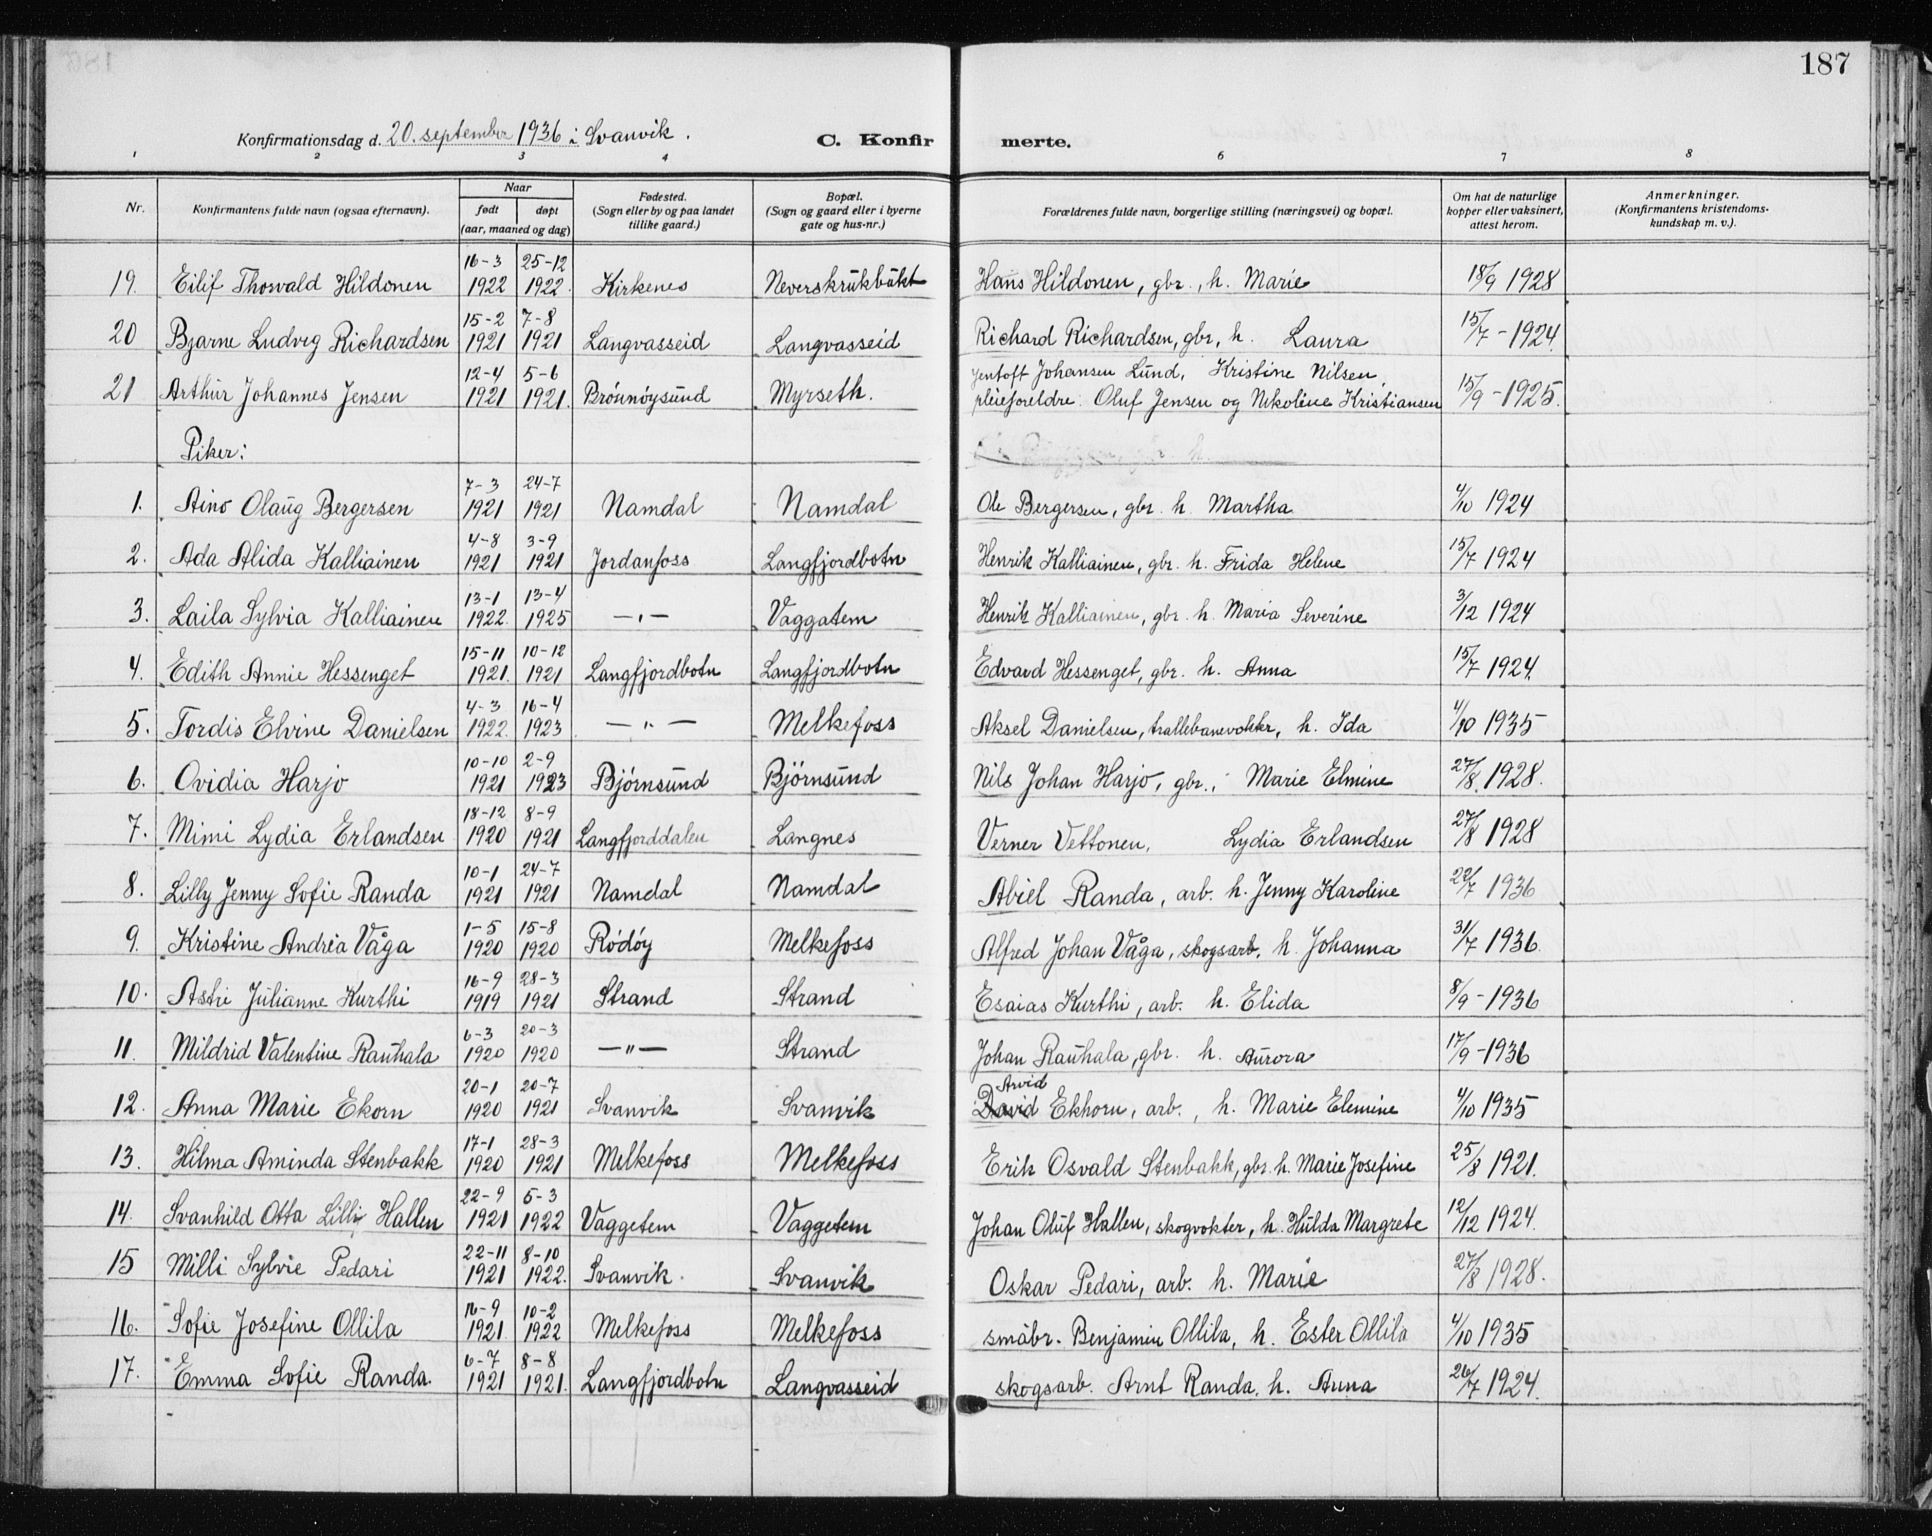 187
Konfirmationsdag d. 20. september 1936 i Svanvik.
C. Konfirmerte.
1 2 3 4 6 7 8
Nr. | Konfirmantens fulde navn (ogsaa efternavn). | Naar født | døpt (aar, maaned og dag) | Fødested. (Sogn eller by og paa landet tillike gaard.) | Bopæl. (Sogn og gaard eller i byerne gate og hus-nr.) | Forældrenes fulde navn, borgerlige stilling (næringsvei) og bopæl. | Om hat de naturlige kopper eller vaksinert, attest herom. | Anmerkninger. (Konfirmantens kristendoms-kundskap m. v.).
19. Eilif Thorvald Hildonen | 16-3 1922 | 25-12 1922. | Kirkenes | Neverskrukbukt | Hans Hildonen, gbr., h. Marie | 18/9 1928
20 Bjarne Ludvig Richardsen | 15-2 1921 | 7-8 1921 | Langvasseid | Langvasseid | Richard Richardsen, gbr, h. Laura | 15/7 - 1924.
21 Arthur Johannes Jensen | 12-4 1921 | 5-6 1921. | Brönnöysund | Myrseth. | Jentoft Johansen Lund, Kristine Nilsen, pleieforeldre: Oluf Jensen og Nikoline Kristiansen | 15/9 - 1925.
Piker:
1. Aino Olaug Bergersen | 7-3 1921 | 24-7 1921 | Namdal | Namdal | Ole Bergersen, gbr. h. Martha | 4/10 1924
2. Ada Alida Kalliainen | 4-8 1921 | 3-9 1921 | Jordanfoss | Langfjordbotn | Henrik Kalliainen, gbr. h. Frida Helene | 15/7 1924
3. Laila Sylvia Kalliainen | 13-1 1922. | 13-4 1925 | — " — | Vaggatem | Henrik Kalliainen, gbr. h. Maria Severine | 3/12 1924
4. Edith Annie Hessenget | 15-11 1921. | 10-12 1921 | Langfjordbotn | Langfjordbotn | Edvard Hessenget, gbr. h. Anna | 15/7 1924.
5. Tordis Elvine Danielsen | 4-3 1922. | 16-4 1923 | — " — | Melkefoss | Aksel Danielsen, trallebanevokter, h. Ida | 4/10 1935
6. Ovidia Harjo | 10-10 1921 | 2-9 1923 | Björnsund | Björnsund | Nils Johan Harjo, gbr., Marie Elmine | 27/8 1928.
7. Mimi Lydia Erlandsen | 18-12 1920 | 8-9 1921 | Langfjorddalen | Langnes | Verner Vettonen, Lydia Erlandsen | 27/8 1928
8. Lilly Jenny Sofie Randa | 10-1 1921 | 24-7 1921 | Namdal | Namdal | Abiel Randa, arb. h. Jenny Karoline | 22/7 1936
9. Kristine Andrea Våga | 1-5 1920 | 15-8 1920 | Rödöy | Melkefoss | Alfred Johan Våga, skogsarb. h. Johanna | 31/7 1936.
10. Astri Julianne Kurthi | 16-9 1919 | 28-3 1921 | Strand | Strand | Esaias Kurthi, arb. h. Elida | 8/9 - 1936
11. Mildrid Valentine Rauhala | 6-3 1920 | 20-3 1920 | — " — | Strand | Johan Rauhala, gbr. h. Aurora | 17/9 - 1936
12. Anna Marie Ekorn | 20-1 1920 | 20-7 1921 | Svanvik | Svanvik | David Arvid Ekhorn, arb., h. Marie Elemine | 4/10 1935
13. Hilma Aminda Stenbakk | 17-1 1920 | 28-3 1921 | Melkefoss | Melkefoss | Erik Osvald Stenbakk, gbr. h. Marie Josefine | 25/8 1921.
14. Svanhild Otta Lilly Hallen | 22-9 1921 | 5-3 1922 | Vaggetem | Vaggetem | Johan Oluf Hallen, skogvokter, h. Hulda Margrete | 12/12 1924.
15 Milli Sylvie Pedari | 22-11 1921 | 8-10 1922. | Svanvik. | Svanvik | Oskar Pedari, arb. h. Marie | 27/8 1928.
16. Sofie Josefine Ollila | 16-9 1921. | 10-2 1922 | Melkefoss | Melkefoss | småbr. Benjamin Ollila, h. Ester Ollila | 4/10 1935
17. Emma Sofie Randa. | 6-7 1921 | 8-8 1921. | Langfjordbotn | Langvasseid | skogsarb. Arnt Randa, h. Anna | 26/7 1924.